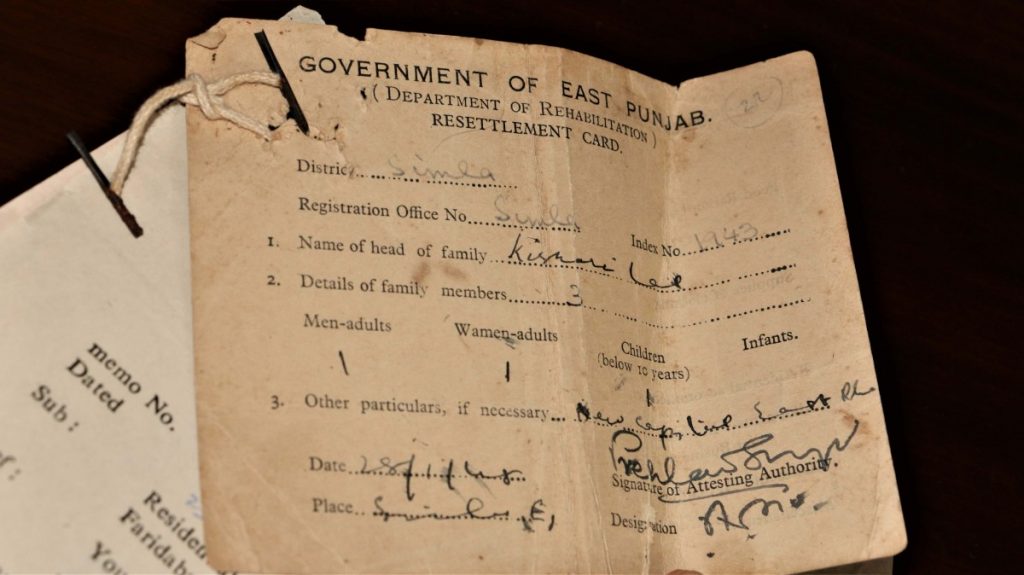 GOVERNMENT OF EAST PUNJAB.
22
(DEPARTMENT OF REHABILITATION)
RESETTLEMENT CARD.
District Simla
Registration Office No. Simla
Index No. 1943
1. Name of head of family Kishori Lal
2. Details of family members 3
Men-adults Wamen-adults Children (below 10 years) Infants.
1 1 1
3. Other particulars, if necessary New Capital East
Date 28/1/
Signature of Attesting Authority.
Place
Designation
memo No.
Dated
Sub :
of :
Faridab
You